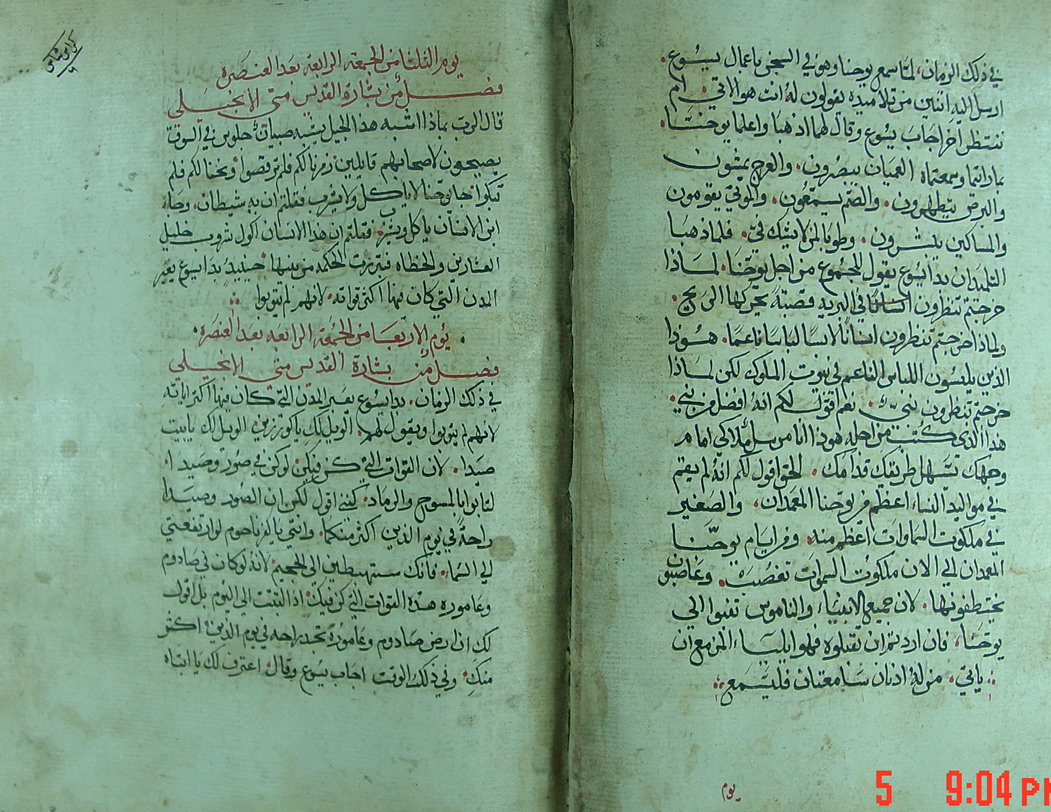 في ذلك الزمان لما سمع يوحنا وهو في السجن باعمال يسوع
ارسل اليه اثنين من تلاميذه يقولون له انت هو الاتي ام
ننتظر اخر اجاب يسوع وقال لهما اذهبا واعلما يوحنا
بما رايتما وسمعتماه العميان يبصرون والعرج يمشون
والبرص يتطهرون والصم يسمعون والموتي يقومون
والمساكين يبشرون وطوبا لمن لا يشك في فلما ذهبا
التلميذان بدا يسوع يقول للجموع من اجل يوحنا لماذا
خرجتم تنظرون في البريه قصبة تحركها الريح
ولماذا خرجتم تنظرون انسانا لابسا لباسا ناعما هوذا
الذين يلبسون اللباس الناعم في بيوت الملوك لكن لماذا
خرجتم تنظرون نبي نعم اقول لكم انه افضل من نبي
هذا الذي كتب من اجله هوذا انا مرسل ملاكي امام
وجهك تسهل طريقك قدامك الحق اقول لكم انه لم يقم
في مواليد النساء اعظم من يوحنا المعمدان والصغير
في ملكوت السماوات اعظم منه ومن ايام يوحنا
المعمدان الي الان ملكوت السموات تغصب وغاصبون
يختطفونها لان جميع الانبياء والناموس تنبوا الي
يوحنا فان اردتم ان تقبلوه فهو ايليا المزمع ان
ياتي من له اذنان سامعتان فليسمع
يوم
يوم الثلثا من الجمعة الرابعة بعد العنصرة
فصل من بشارة القديس متي الانجيلي
قال الرب بماذا اشبه هذا الجيل يشبه صبيان جلوس في السوق
يصيحون لاصحابهم قايلين زمرنا لكم فلم ترقصوا ونحنا لكم فلم
تبكوا جا يوحنا لا ياكل ولا يشرب فقلتم ان به شيطان وجاء
ابن الانسان ياكل ويشرب فقلتم ان هذا الانسان اكول شروب خليل
العشارين والخطاه فتبررت الحكمه من بنيها حينيذ بدا يسوع يعير
المدن التي كان فيها اكثر قواته لانهم لم يتوبوا
يوم الاربعا من الجمعة الرابعة بعد العنصرة
فصل من بشارة القديس متي الانجيلي
في ذلك الزمان بدا يسوع يعير المدن التي كان فيها اكثر اياته
لانهم لم يتوبوا ويقول لهم الويل لك يا كورزين الويل لك يا بيت
صيدا لان القوات التي كن فيكن لو كن في صور وصيدا
لتابوا بالمسوح والرماد لكنني اقول لكم ان الصور وصيدا
راحة في يوم الدين اكثر منكما وانتي يا كفرناحوم لو ارتفعتي
الي السماء فانك ستهبطين الي الجحيم لانه لو كان في صادوم
وعاموره هذه القوات التي كن فيك اذا لثبتت الي اليوم بل اقول
لك ان ارض صادوم وعامورة تجد راحه في يوم الدين اكثر
منك وفي ذلك الوقت اجاب يسوع وقال اعترف لك يا ابتاه
5 9:04 PM